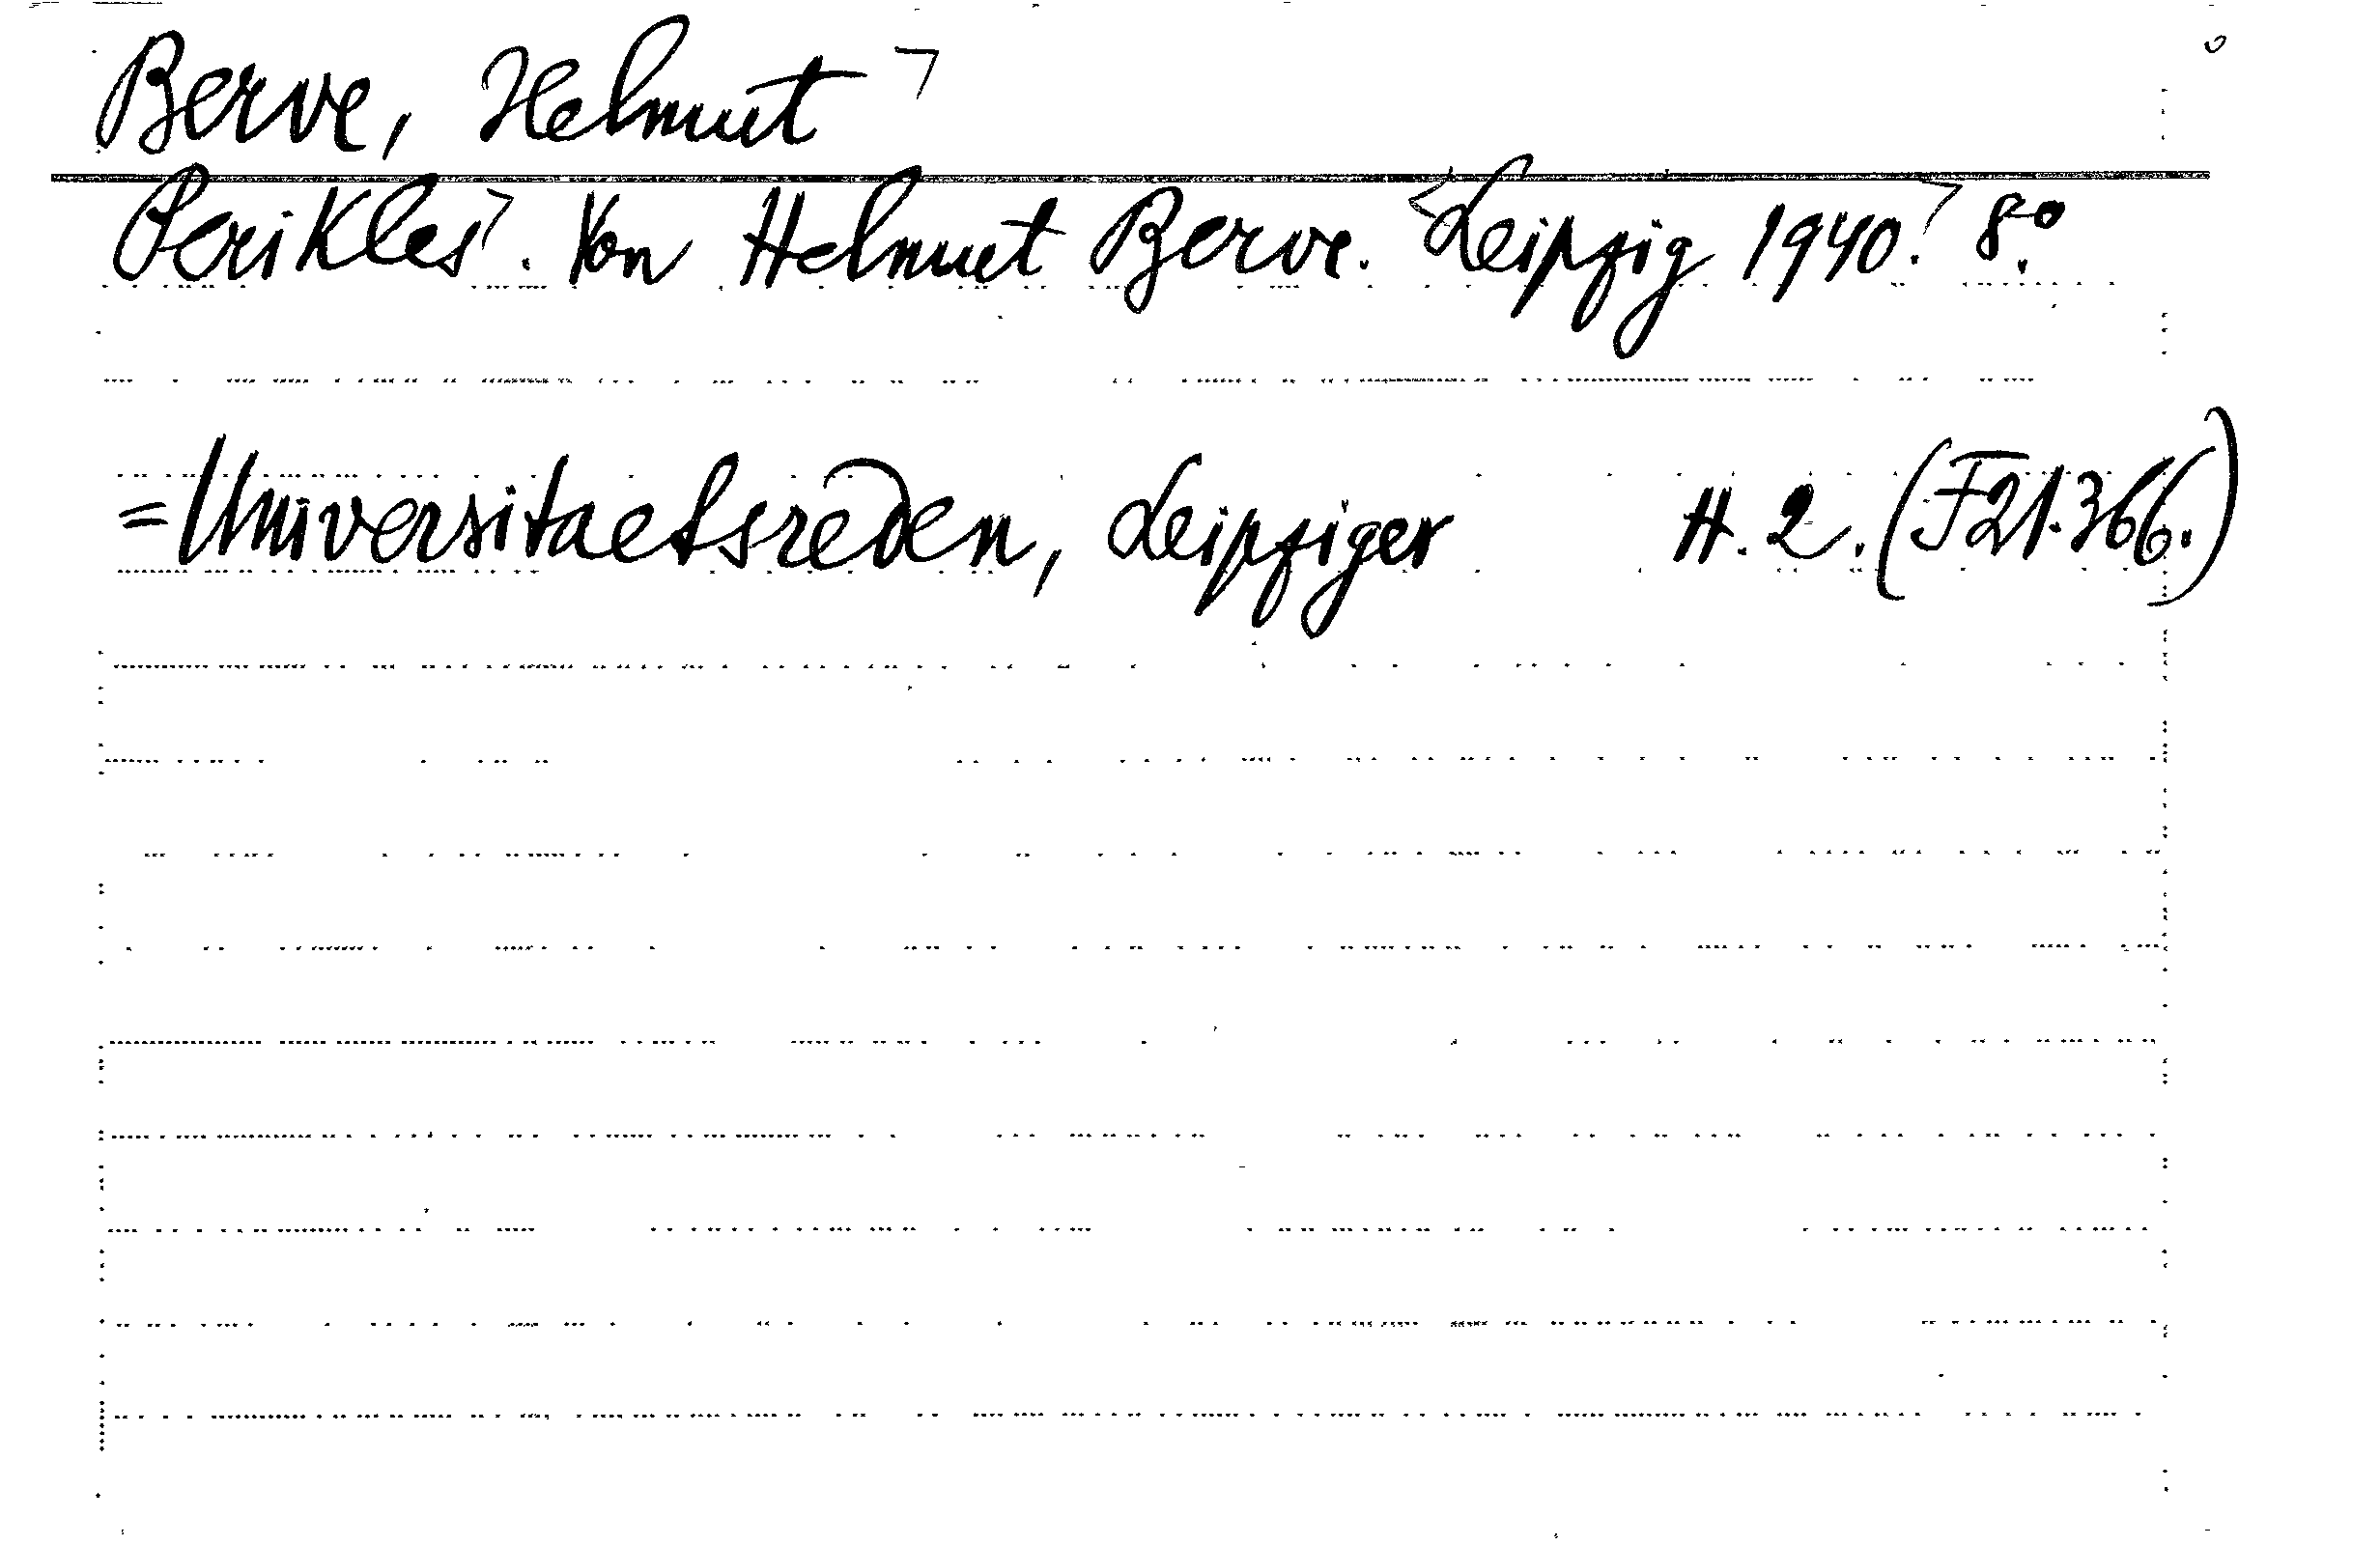 Berve, Helmut
Perikles. Von Helmut Berve. Leipzig 1940. 8°.
=Universitaetsreden, Leipziger H. 2. (F21.366.)